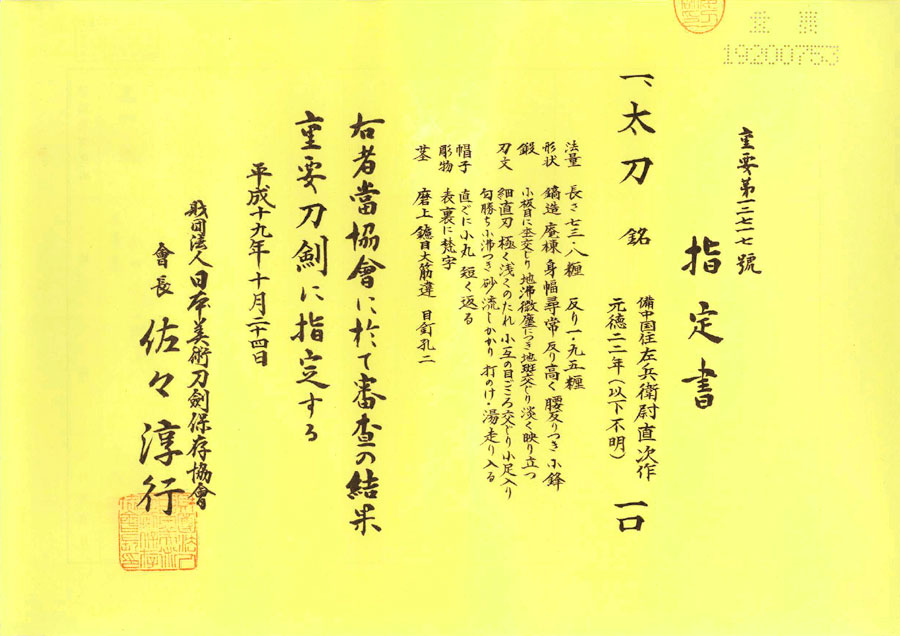 重要第一二七一七號
指定書
一、太刀 銘 備中国住左兵衛尉直次作 一口
元徳二二年(以下不明)
法量 長さ七三・八糎 反り一・九五糎
形状 鎬造 庵棟 身幅尋常 反り高く 腰反りつき 小鋒
鍛 小板目に杢交じり 地沸微塵につき 地斑交じり 淡く映り立つ
刃文 細直刃 極く浅くのたれ 小互の目ごころ交じり 小足入り
匂勝ち小沸つき 砂流しかかり 打のけ・湯走り入る
帽子 直ぐに小丸 短く返る
彫物 表裏に梵字
茎 磨上 鑢目大筋違 目釘孔二
右者當協會に於て審査の結果
重要刀剣に指定する
平成十九年十月二十四日
財団法人日本美術刀剣保存協會
會長 佐々淳行
19200753